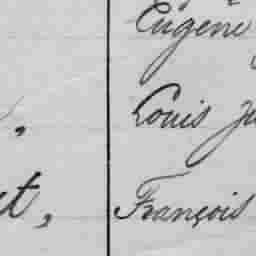 Eugène
Louis Ju
et, François